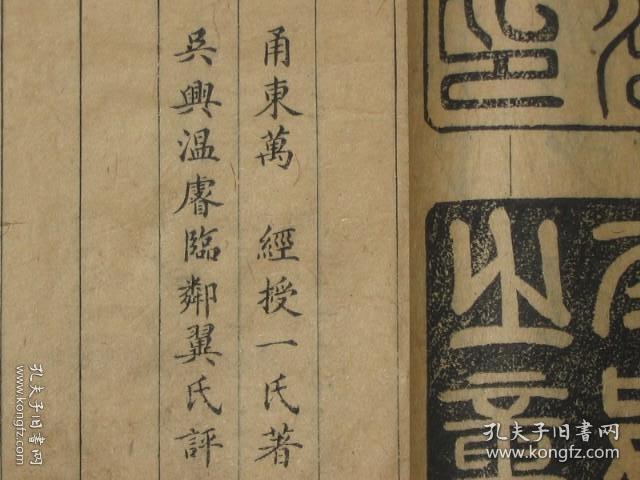 甬東萬　經授一氏著
吳興溫睿臨鄰翼氏評
之章
孔夫子旧書网
www.kongfz.com
孔夫子旧書网
www.kongfz.com